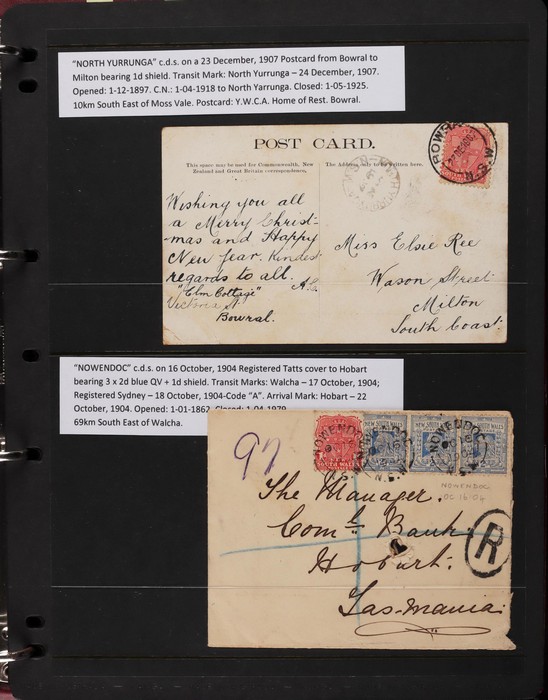 "NORTH YURRUNGA" c.d.s. on a 23 December, 1907 Postcard from Bowral to
Milton bearing 1d shield. Transit Mark: North Yurrunga – 24 December, 1907.
Opened: 1-12-1897. C.N.: 1-04-1918 to North Yarrunga. Closed: 1-05-1925.
10km South East of Moss Vale. Postcard: Y.W.C.A. Home of Rest. Bowral.
POST CARD.
This space may be used for Commonwealth, New
Zealand and Great Britain correspondence.
The Address only to be written here.
BOWRAL
N.S.W
Wishing you all
a Merry Christ-
mas and Happy
New Year. Kindest
regards to all.
"Elm Cottage"
Victoria St.
Bowral.
Miss Elsie Ree
Wason Street
Milton
South Coast.
"NOWENDOC" c.d.s. on 16 October, 1904 Registered Tatts cover to Hobart
bearing 3 x 2d blue QV + 1d shield. Transit Marks: Walcha – 17 October, 1904;
Registered Sydney – 18 October, 1904-Code "A". Arrival Mark: Hobart – 22
October, 1904. Opened: 1-01-1862. Closed: 1-04-1979.
69km South East of Walcha.
97
NOWENDOC
N.S.W
SOUTH WALES
NEW SOUTH WALES
NOWENDOC
OC 16 04
The Manager.
Coml. Bank
Hobart.
Tasmania
R